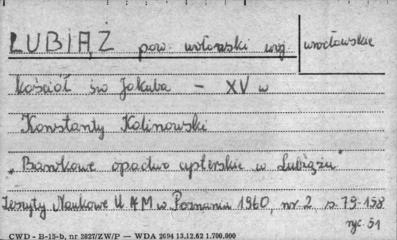 LUBIĄŻ pow. wołowski woj. wrocławskie
kościół św Jakuba – XV w
Konstanty Kalinowski
"Barokowe opactwo cysterskie w Lubiążu"
Zeszyty Naukowe U A M w Poznaniu 1960, nr 2 s. 79-158
ryc. 51
CWD - B-15-b, nr 2827/ZW/P — WDA 2694 13.12.62 1.700.000